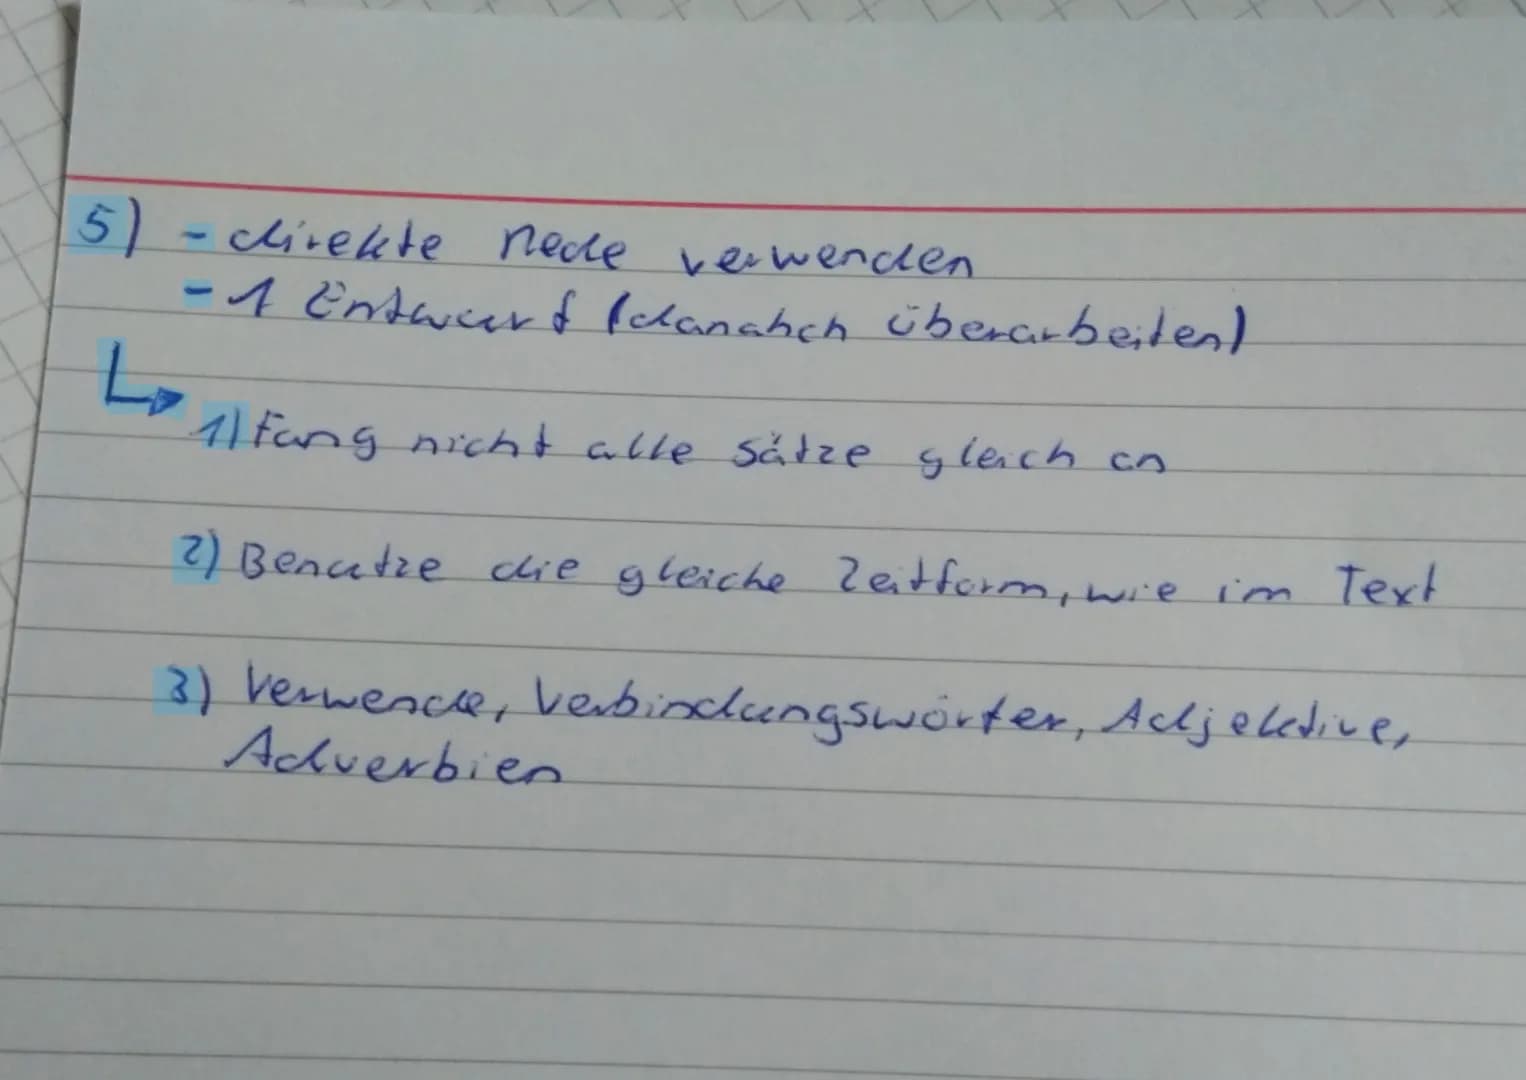 5) - direkte Rede verwenden
- 1 Entwurf (danahch überarbeiten)
1) Fang nicht alle sätze gleich an
2) Benutze die gleiche Zeitform, wie im Text
3) Verwende, Verbindungswörter, Adjektive,
Adverbien